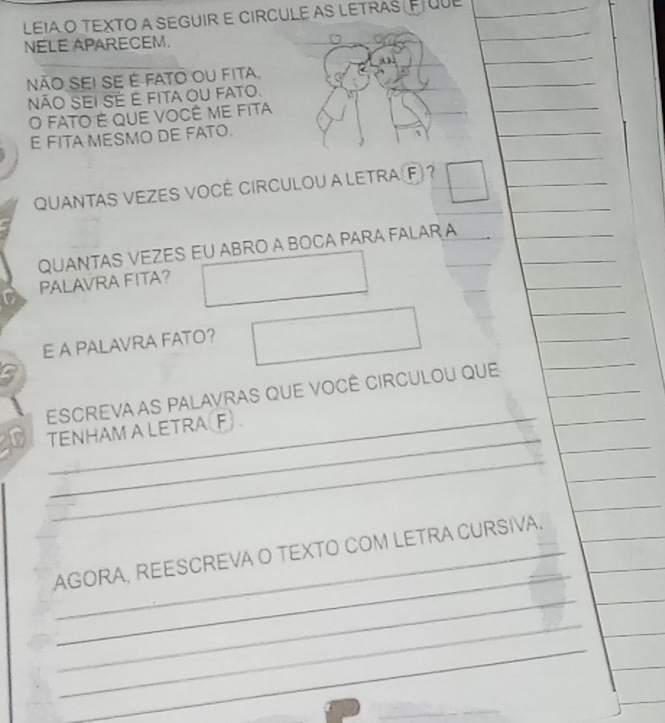 LEIA O TEXTO A SEGUIR E CIRCULE AS LETRAS F QUE
NELE APARECEM.
NÃO SEI SE É FATO OU FITA,
NÃO SEI SE É FITA OU FATO.
O FATO É QUE VOCÊ ME FITA
E FITA MESMO DE FATO.
QUANTAS VEZES VOCÊ CIRCULOU A LETRA F ?
QUANTAS VEZES EU ABRO A BOCA PARA FALAR A
PALAVRA FITA?
E A PALAVRA FATO?
ESCREVA AS PALAVRAS QUE VOCÊ CIRCULOU QUE
TENHAM A LETRA F .
AGORA, REESCREVA O TEXTO COM LETRA CURSIVA.